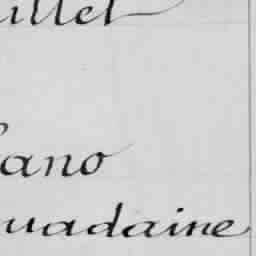 uillet
ano
uadaine